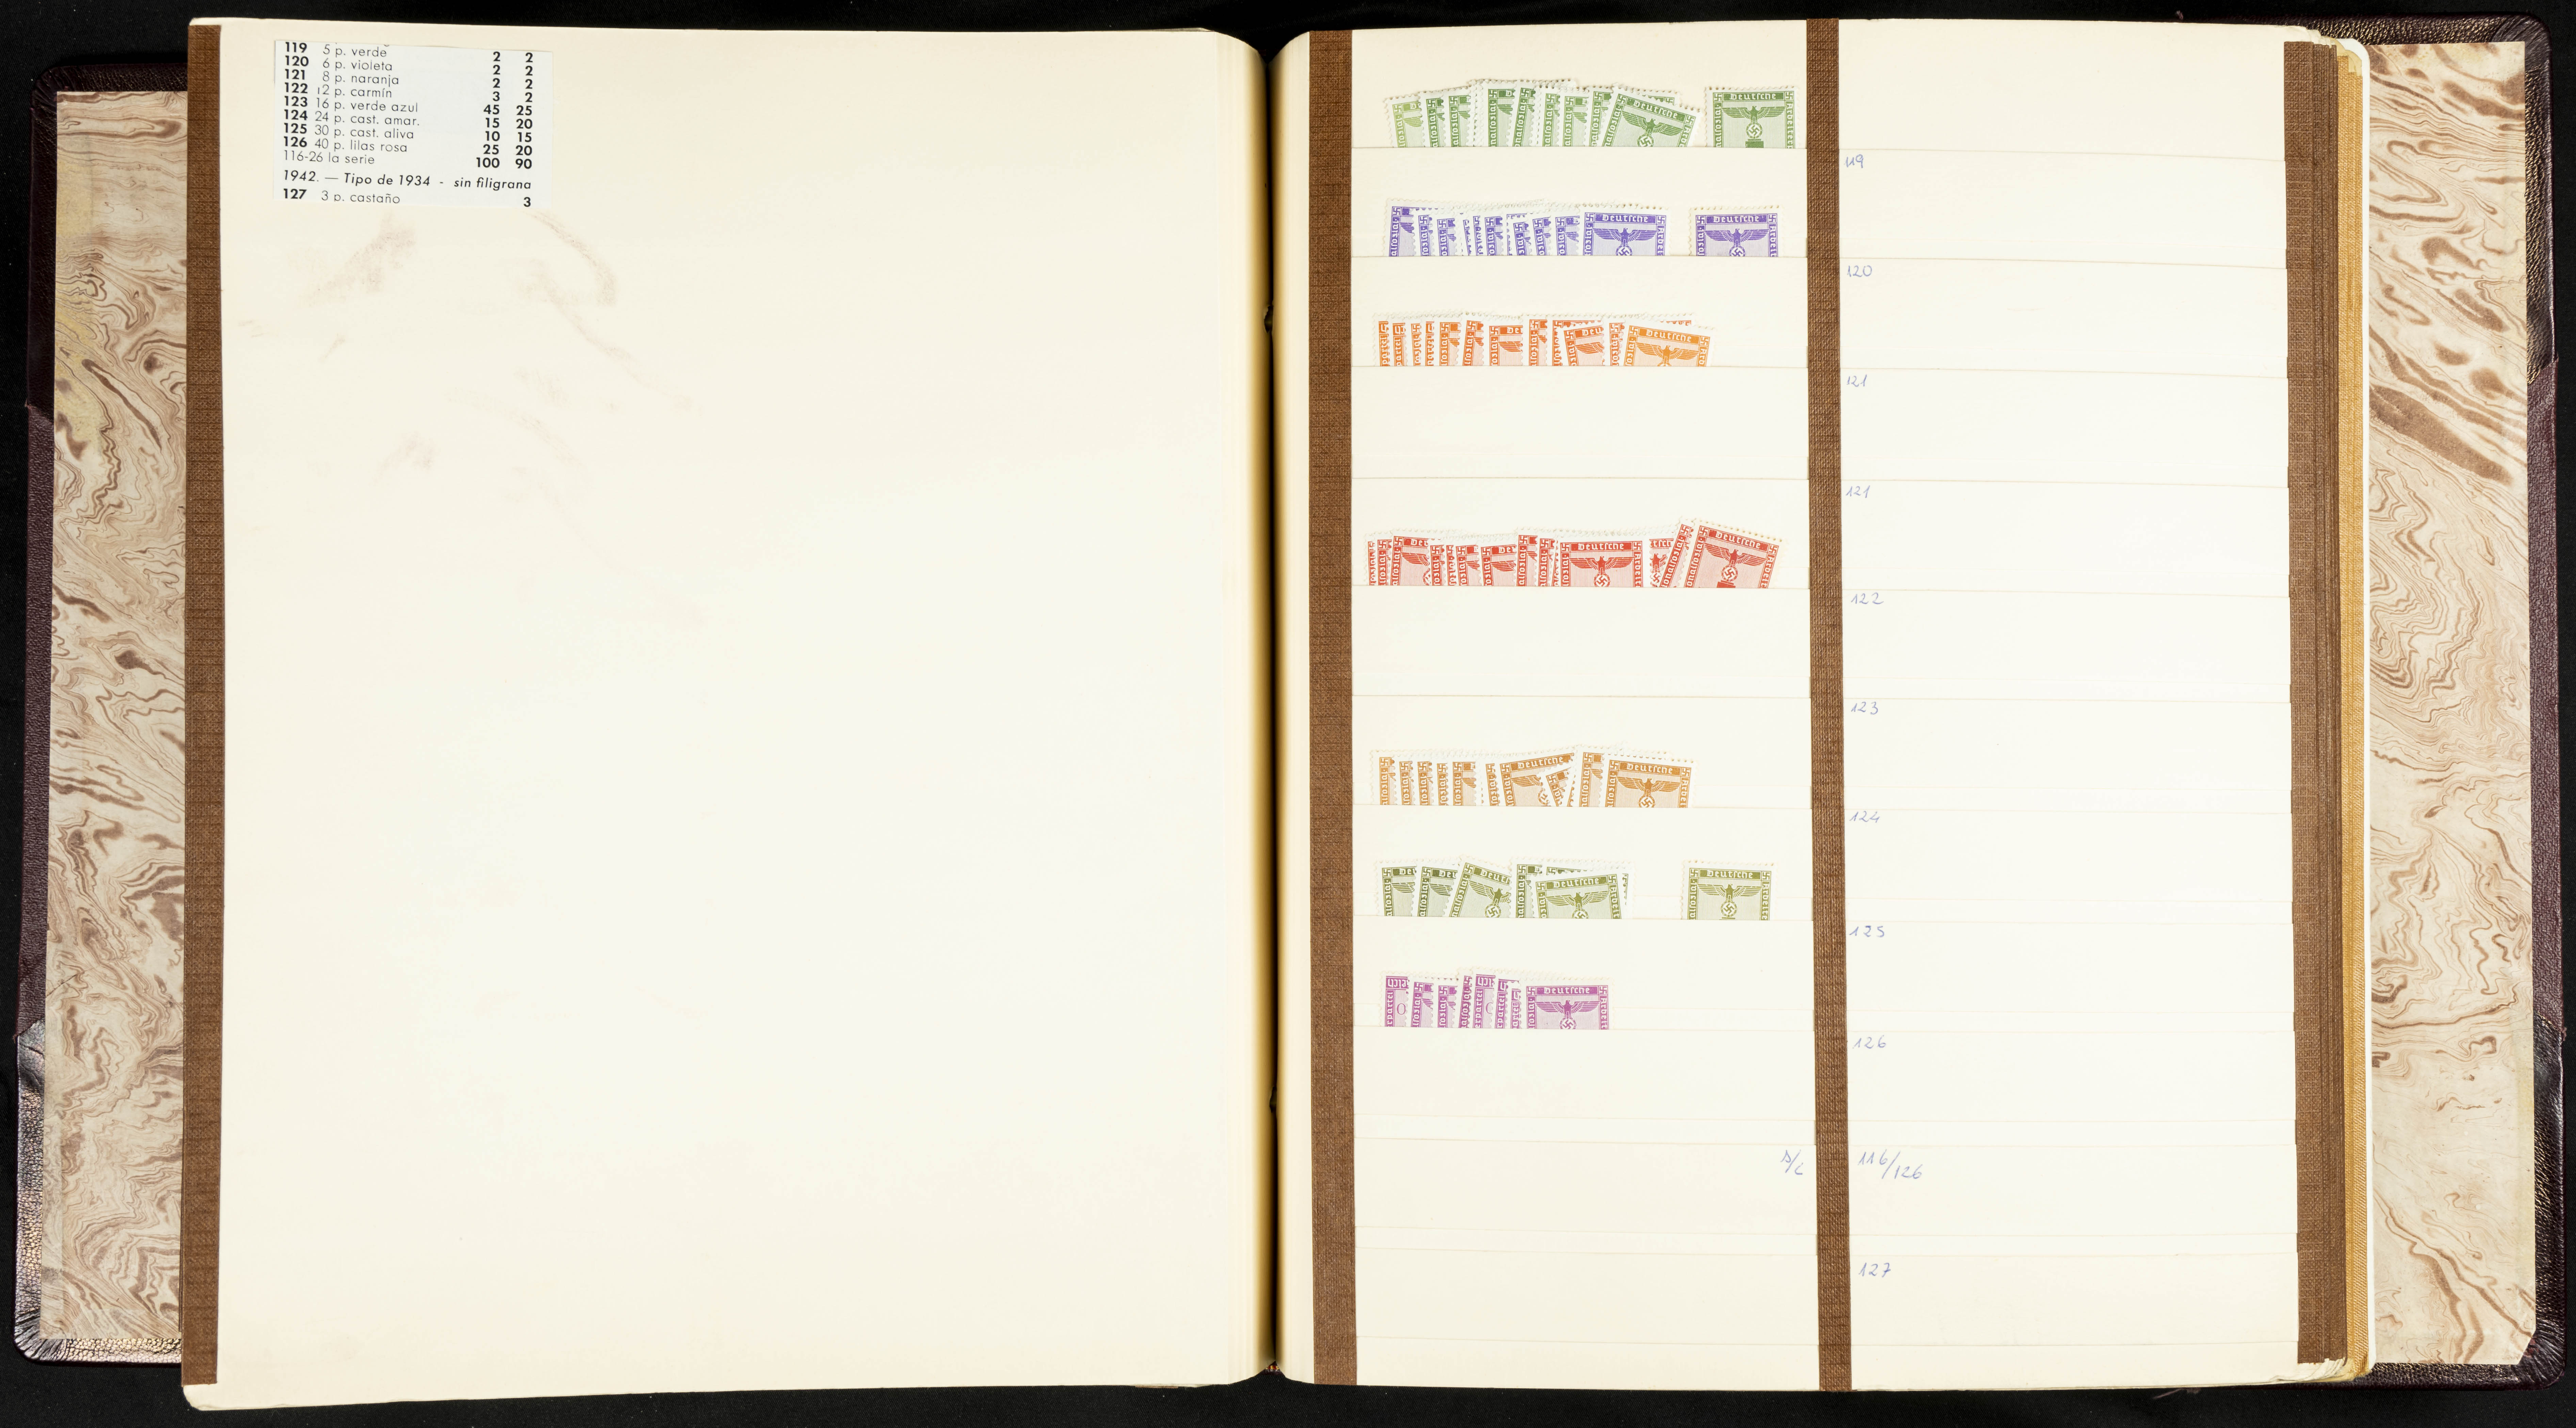 119 5 p. verde 2 2
120 6 p. violeta 2 2
121 8 p. naranja 2 2
122 12 p. carmín 3 2
123 16 p. verde azul 45 25
124 24 p. cast. amar. 15 20
125 30 p. cast. aliva 10 15
126 40 p. lilas rosa 25 20
116-26 la serie 100 90
1942. — Tipo de 1934 - sin filigrana
127 3 p. castaño 3
Deutsche
119
Deutsche Deutsche
120
Deutsche
121
121
Deutsche Deutsche
122
123
Deutsche Deutsche
124
Deutsche Deutsche
125
Deutsche
126
116/126
127